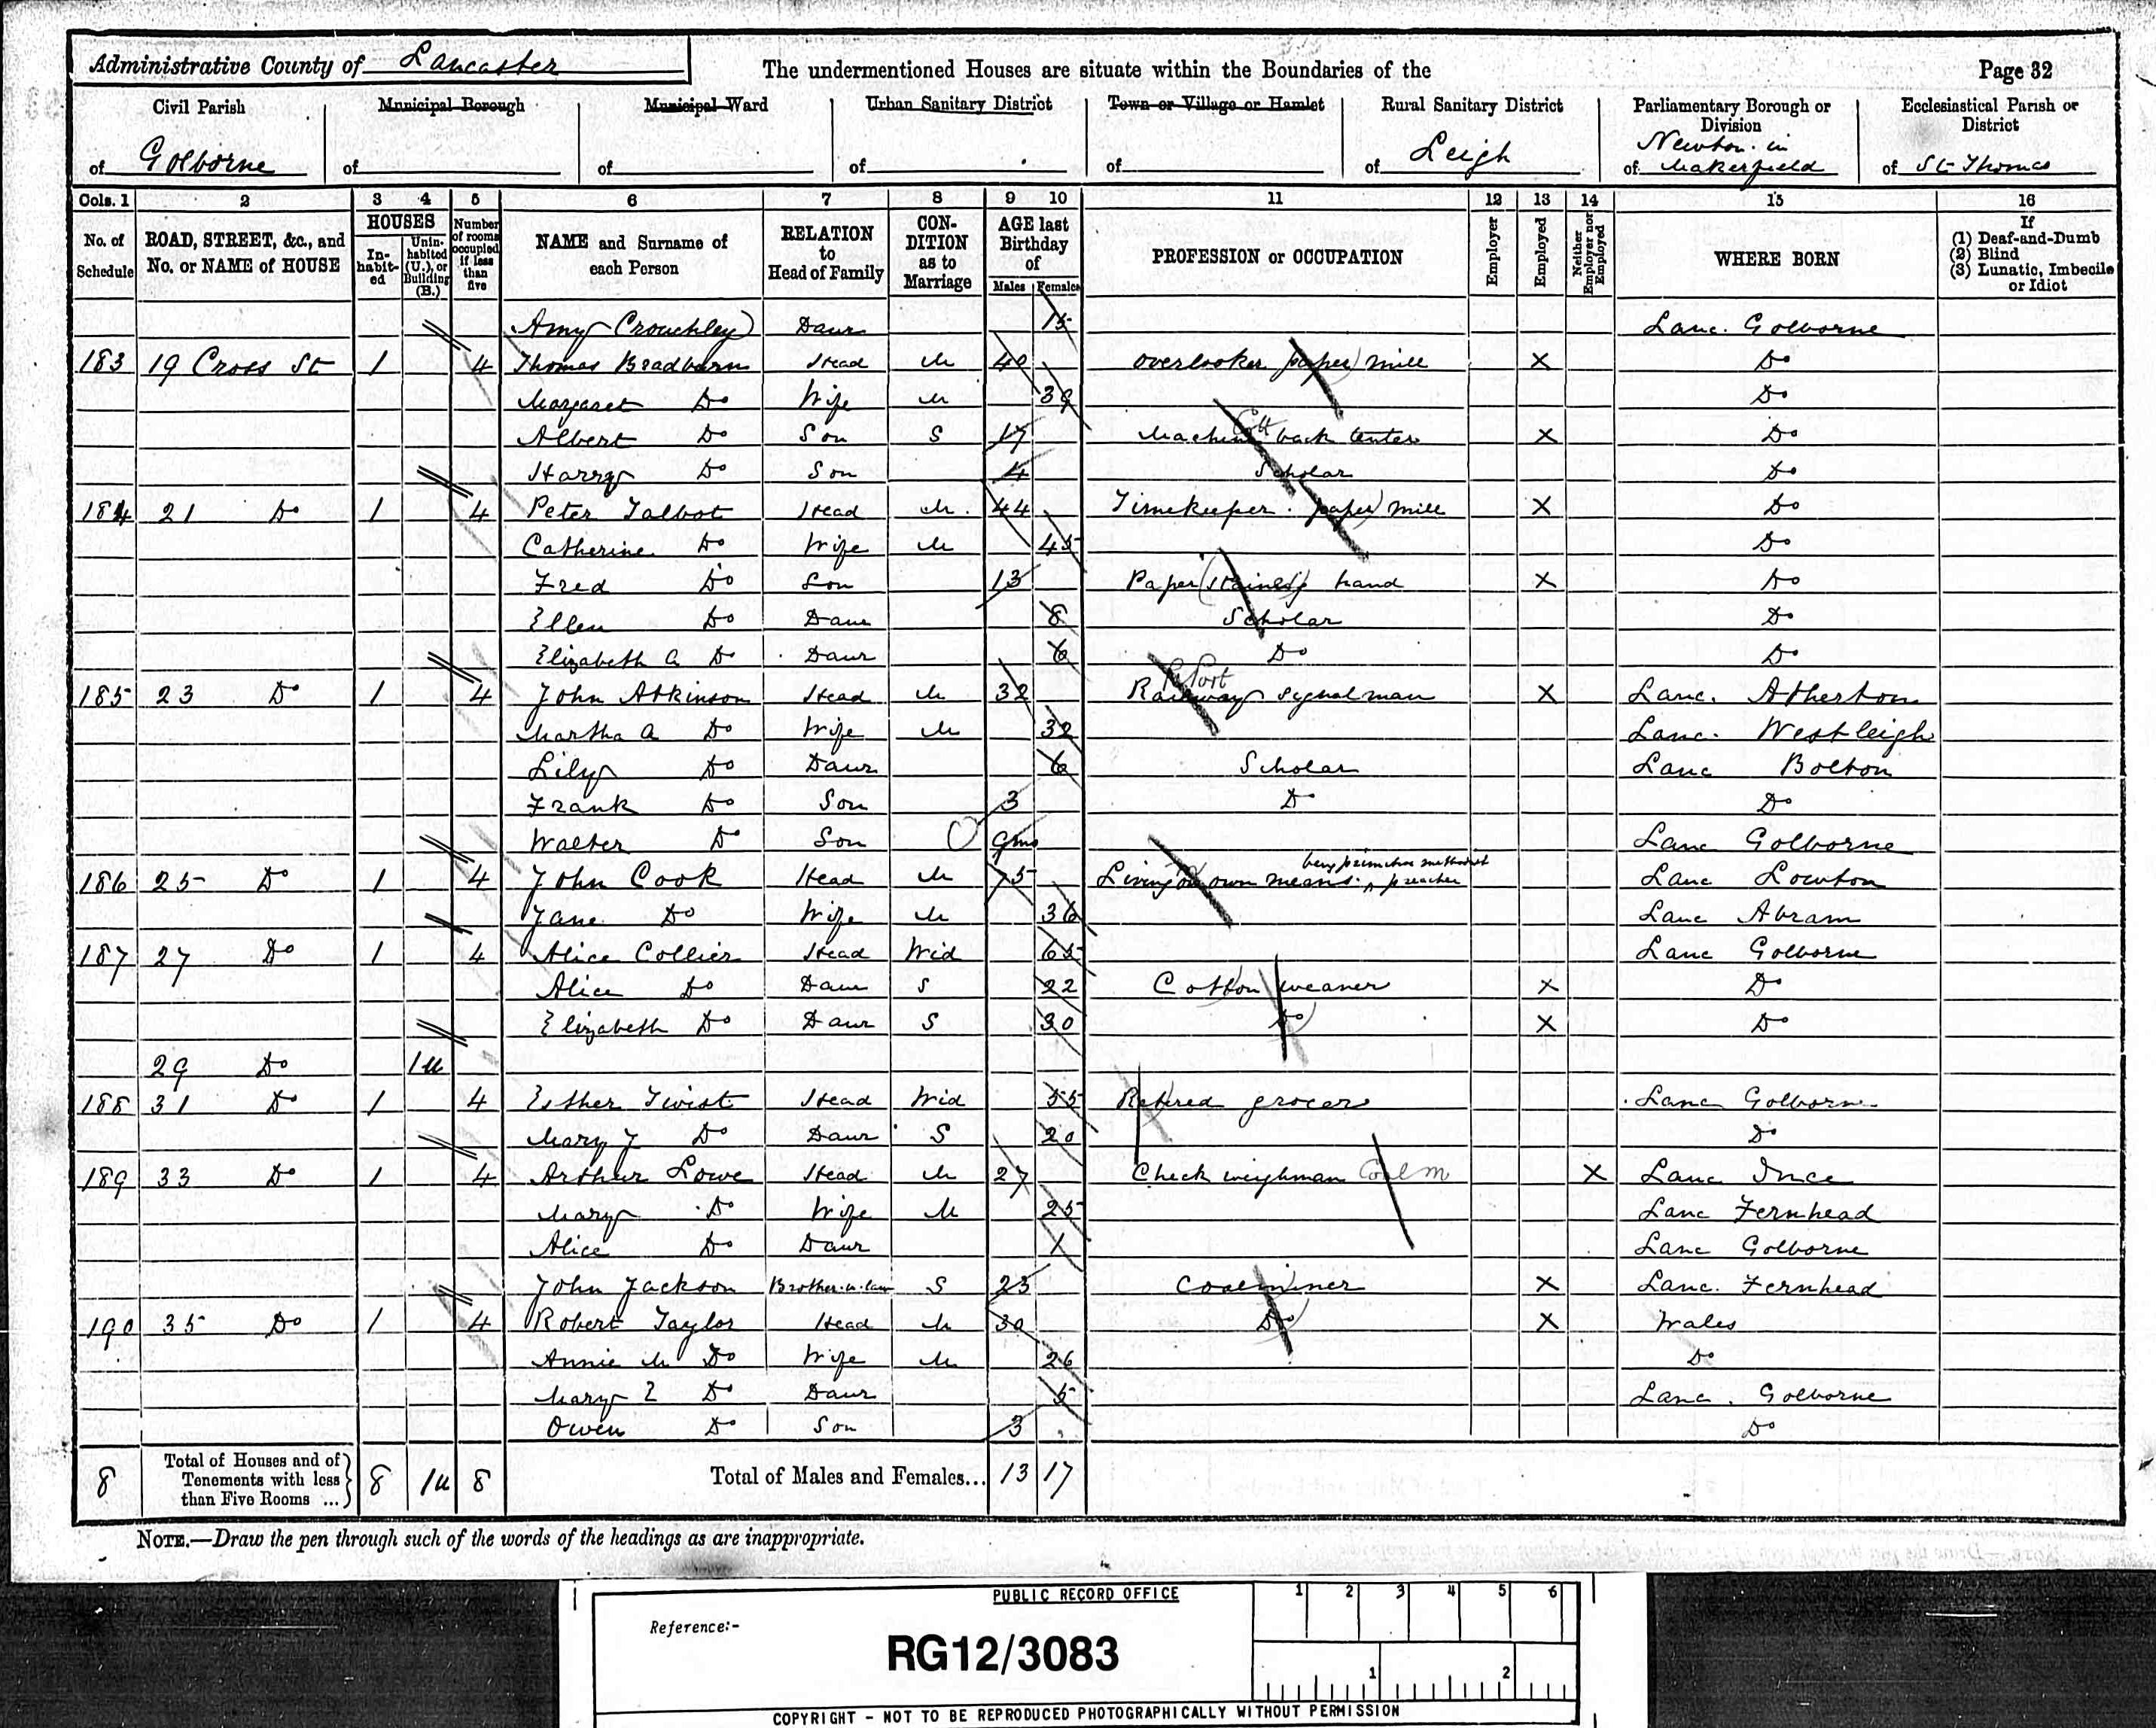 Administrative County of Lancaster The undermentioned Houses are situate within the Boundaries of the Page 32
Civil Parish Municipal Borough Municipal Ward Urban Sanitary District Town or Village or Hamlet Rural Sanitary District Parliamentary Borough or Division Ecclesiastical Parish or District
of Golborne of of of of of Leigh of Newton in Makerfield of St Thomas
Cols. 1 2 3 4 5 6 7 8 9 10 11 12 13 14 15 16
No. of Schedule ROAD, STREET, &c., and No. or NAME of HOUSE HOUSES Inhabited Uninhabited (U.), or Building (B.) Number of rooms occupied if less than five NAME and Surname of each Person RELATION to Head of Family CONDITION as to Marriage AGE last Birthday of Males Females PROFESSION or OCCUPATION Employer Employed Neither Employer nor Employed WHERE BORN If (1) Deaf-and-Dumb (2) Blind (3) Lunatic, Imbecile or Idiot
Amy Crouchley Daur 15 Lanc. Golborne
183 19 Cross St 1 4 Thomas Bradburn Head M 40 Overlooker paper mill X Do
Margaret Do Wife M 39 Do
Albert Do Son S 17 Machine Cott back tenter X Do
Harry Do Son 4 Scholar Do
184 21 Do 1 4 Peter Talbot Head M. 44 Timekeeper. paper mill X Do
Catherine Do Wife M 45 Do
Fred Do Son 13 Paper (stained) hand X Do
Ellen Do Daur 8 Scholar Do
Elizabeth A Do Daur 6 Do Do
185 23 Do 1 4 John Atkinson Head M 32 Railway signalman X Lanc. Atherton
Martha A Do Wife M 32 Lanc. Westleigh
Lily Do Daur 6 Scholar Lanc Bolton
Frank Do Son 3 Do Do
Walter Do Son 9mo Lanc Golborne
186 25 Do 1 4 John Cook Head M 75 Living on own means. being primitive methodist preacher Lanc Lowton
Jane Do Wife M 36 Lanc Abram
187 27 Do 1 4 Alice Collier Head Wid 65 Lanc Golborne
Alice Do Daur S 22 Cotton weaver X Do
Elizabeth Do Daur S 30 Do X Do
29 Do 1u
188 31 Do 1 4 Esther Twist Head Wid 55 Retired grocer Lanc Golborne
Mary J Do Daur S 20 Do
189 33 Do 1 4 Arthur Lowe Head M 27 Check weighman Coal m X Lanc Ince
Mary Do Wife M 25 Lanc Fernhead
Alice Do Daur 1 Lanc Golborne
John Jackson Brother-in-law S 23 Coalminer X Lanc. Fernhead
190 35 Do 1 4 Robert Taylor Head M 30 Do X Wales
Annie M Do Wife M 26 Do
Mary E Do Daur 5 Lanc. Golborne
Owen Do Son 3 Do
8 Total of Houses and of Tenements with less than Five Rooms ... 8 1u 8 Total of Males and Females... 13 17
NOTE.—Draw the pen through such of the words of the headings as are inappropriate.
PUBLIC RECORD OFFICE 1 2 3 4 5 6
Reference:-
RG12/3083
1 2
COPYRIGHT - NOT TO BE REPRODUCED PHOTOGRAPHICALLY WITHOUT PERMISSION